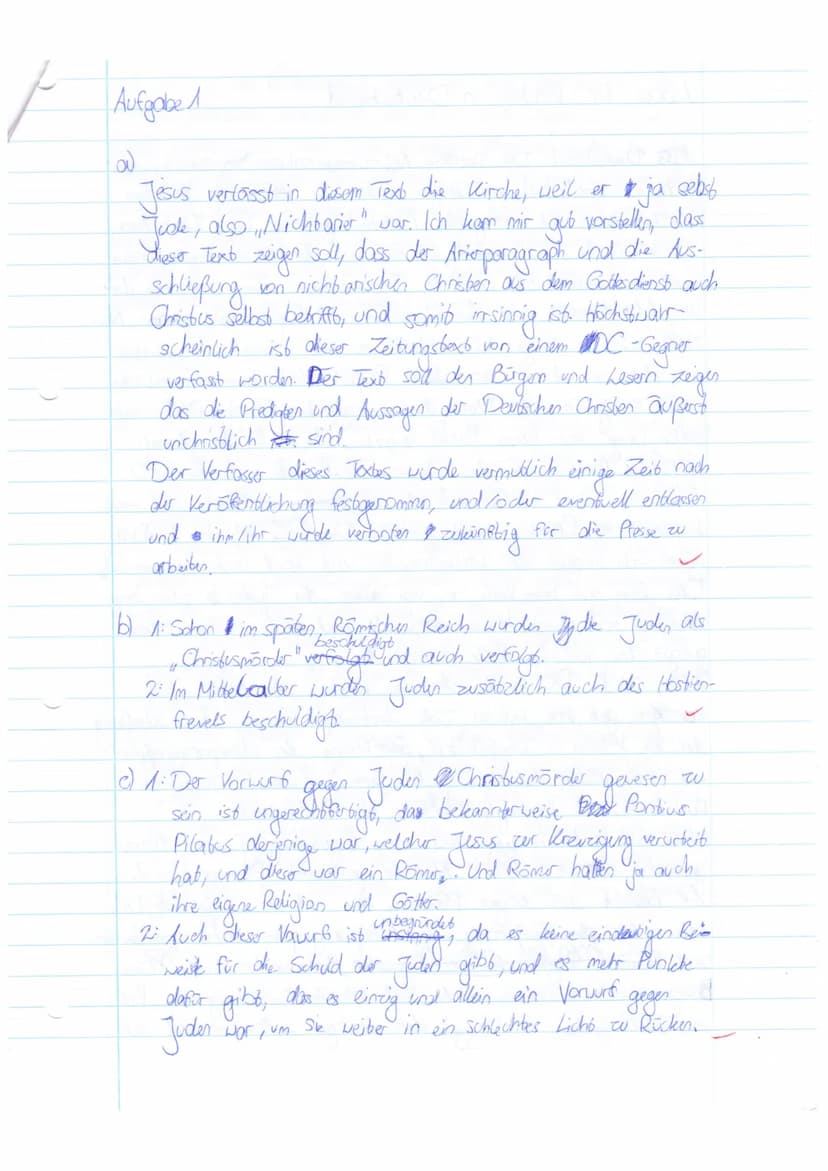 Aufgabe 1
a)
Jesus verlässt in diesem Text die Kirche, weil er ja selbst
Jude, also „Nichtarier" war. Ich kann mir gut vorstellen, dass
dieser Text zeigen soll, dass der Arierparagraph und die Aus-
schließung von nichtarischen Christen aus dem Gottesdienst auch
Christus selbst betrifft, und somit irrsinnig ist. Höchstwahr-
scheinlich ist dieser Zeitungstext von einem DC-Gegner
verfasst worden. Der Text soll den Bürgern und Lesern zeigen
das die Predigten und Aussagen der Deutschen Christen äußerst
unchristlich sind.
Der Verfasser dieses Textes wurde vermutlich einige Zeit nach
der Veröffentlichung festgenommen, und/oder eventuell entlassen
und ihm/ihr wurde verboten zukünftig für die Presse zu
arbeiten.
b) 1: Schon im späten, Römischen Reich wurden die Juden als
„Christusmörder" beschuldigt und auch verfolgt.
2: Im Mittelalter wurden Juden zusätzlich auch des Hostien-
frevels beschuldigt.
c) 1: Der Vorwurf gegen Juden Christusmörder gewesen zu
sein ist ungerechtfertigt, das bekannterweise Pontius
Pilatus derjenige war, welcher Jesus zur Kreuzigung verurteilt
hat, und dieser war ein Römer. Und Römer hatten ja auch
ihre eigene Religion und Götter.
2: Auch dieser Vorwurf ist unbegründet, da es keine eindeutigen Be-
weise für die Schuld der Juden gibt, und es mehr Punkte
dafür gibt, das es einzig und allein ein Vorwurf gegen
Juden war, um Sie weiter in ein schlechtes Licht zu Rücken.